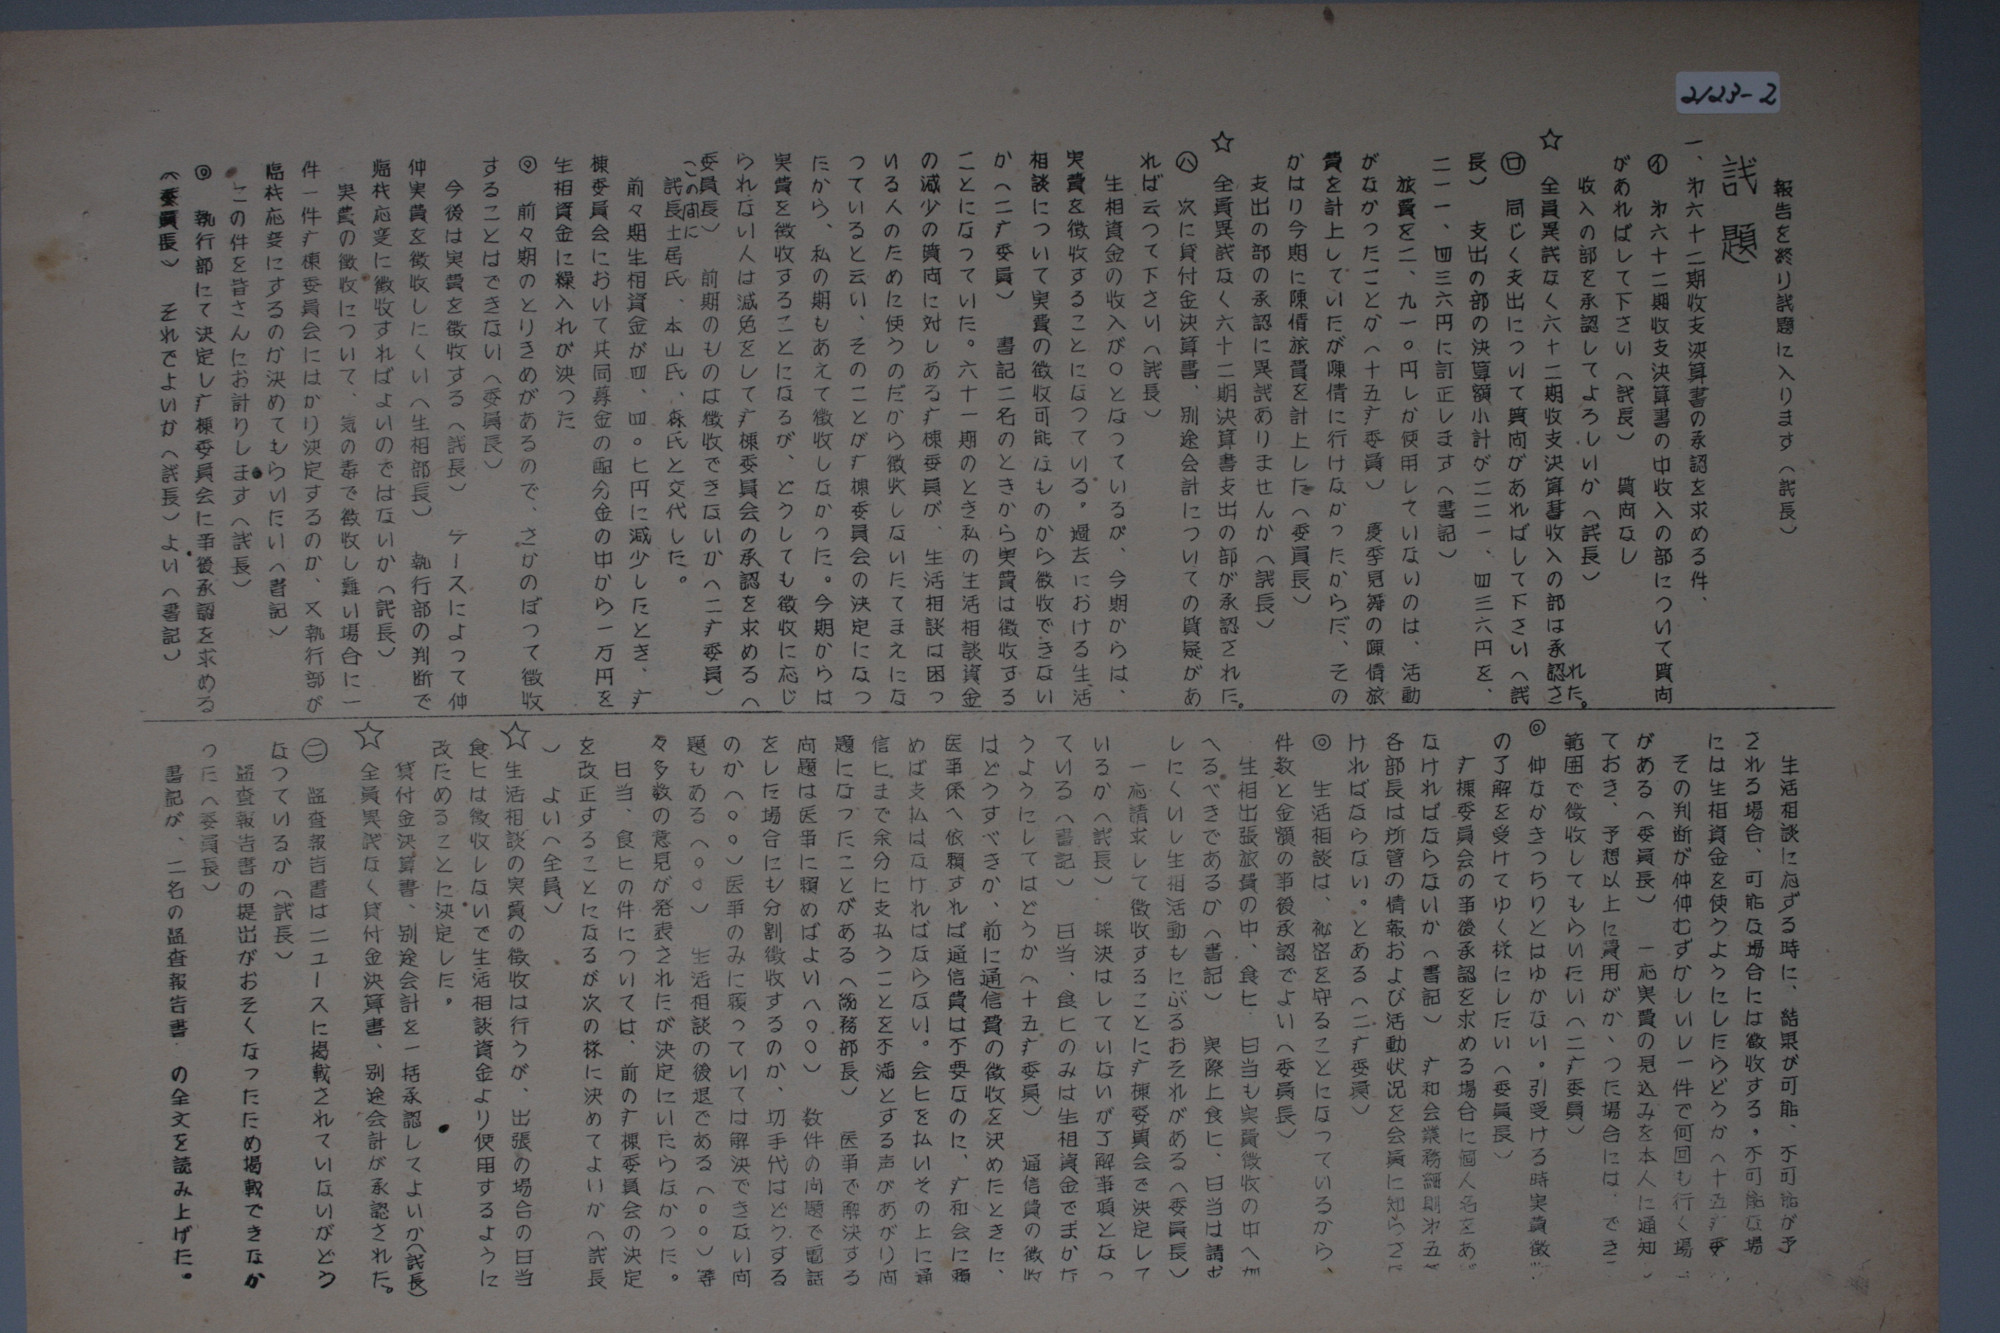 2123-2
報告を終り議題に入ります（議長）
議題
一、第六十二期収支決算書の承認を求める件、
㋑ 第六十二期収支決算書の中収入の部について質問
があればして下さい（議長） 質問なし
収入の部を承認してよろしいか（議長）
☆ 全員異議なく六十二期収支決算書収入の部は承認された。
㋺ 同じく支出について質問があればして下さい（議
長） 支出の部の決算額小計が二二一、四三六円を、
二一一、四三六円に訂正します（書記）
旅費を二、九一〇円しか使用していないのは、活動
がなかったことか（十五寮委員） 慶季見舞の陳情旅
費を計上していたが陳情に行けなかったからだ、その
かはり今期に陳情旅費を計上した（委員長）
支出の部の承認に異議ありませんか（議長）
☆ 全員異議なく六十二期決算書支出の部が承認された。
㋩ 次に貸付金決算書、別途会計についての質疑があ
れば云って下さい（議長）
生相資金の収入が〇となっているが、今期からは、
実費を徴収することになっている。過去における生活
相談について実費の徴収可能なものから徴収できない
か（二寮委員） 書記二名のときから実費は徴収する
ことになっていた。六十一期のとき私の生活相談資金
の減少の質問に対しある寮棟委員が、生活相談は困っ
いる人のために使うのだから徴収しないたてまえにな
っていると云い、そのことが寮棟委員会の決定になっ
たから、私の期もあえて徴収しなかった。今期からは
実費を徴収することになるが、どうしても徴収に応じ
られない人は減免をして寮棟委員会の承認を求める（
委員長） 前期のものは徴収できないか（二寮委員）
（この間に
議長土居氏、本山氏、森氏と交代した。
前々期生相資金が四、四〇七円に減少したとき、寮
棟委員会において共同募金の配分金の中から一万円を
生相資金に繰入れが決った
◎ 前々期のとりきめがあるので、さかのぼって徴収
することはできない（委員長）
今後は実費を徴収する（議長） ケースによって仲
仲実費を徴収しにくい（生相部長） 執行部の判断で
臨機応変に徴収すればよいのではないか（議長）
実費の徴収について、気の毒で徴収し難い場合に一
件一件寮棟委員会にはかり決定するのか、又執行部が
臨機応変にするのか決めてもらいたい（書記）
この件を皆さんにお計りします（議長）
◎ 執行部にて決定し寮棟委員会に事後承認を求める
（委員長） それでよいか（議長）よい（書記）
生活相談に応ずる時に、結果が可能、不可能が予
される場合、可能な場合には徴収する。不可能な場
には生相資金を使うようにしたらどうか（十五寮委
その判断が仲仲むずかしい一件で何回も行く場
がある（委員長） 一応実費の見込みを本人に通知し
ておき、予想以上に費用がかゝった場合には、でき
範囲で徴収してもらいたい（二寮委員）
◎ 仲なかきっちりとはゆかない。引受ける時実費徴
の了解を受けてゆく様にしたい（委員長）
寮棟委員会の事後承認を求める場合に個人名をあ
なければならないか（書記） 寮和会業務細則第五
各部長は所管の情報および活動状況を会員に知らさ
ければならない。とある（二寮委員）
◎ 生活相談は、秘密を守ることになっているから、
件数と金額の事後承認でよい（委員長）
生相出張旅費の中、食ヒ、日当も実費徴収の中へ加
へるべきであるか（書記） 実際上食ヒ、日当は請求
しにくいし生相活動もにぶるおそれがある（委員長）
一応請求して徴収することに寮棟委員会で決定して
いるか（議長） 採決はしていないが了解事項となっ
ている（書記） 日当、食ヒのみは生相資金でまかな
うようにしてはどうか（十五寮委員） 通信費の徴収
はどうすべきか、前に通信費の徴収を決めたときに、
医事係へ依頼すれば通信費は不要なのに、寮和会に頼
めば支払はなければならない。会ヒを払いその上に通
信ヒまで余分に支払うことを不満とする声があがり問
題になったことがある（総務部長） 医事で解決する
問題は医事に頼めばよい（〇〇） 数件の問題で電話
をした場合にも分割徴収するのか、切手代はどうする
のか（〇〇）医事のみに頼っていては解決できない問
題もある（〇〇） 生活相談の後退である（〇〇）等
々多数の意見が発表されたが決定にいたらなかった。
日当、食ヒの件については、前の寮棟委員会の決定
を改正することになるが次の様に決めてよいか（議長
） よい（全員）
☆ 生活相談の実費の徴収は行うが、出張の場合の日当
食ヒは徴収しないで生活相談資金より使用するように
改ためることに決定した。
貸付金決算書、別途会計を一括承認してよいか（議長）
☆ 全員異議なく貸付金決算書、別途会計が承認された。
㊁ 監査報告書はニュースに掲載されていないがどう
なっているか（議長）
監査報告書の提出がおそくなったため掲載できなか
った（委員長）
書記が、二名の監査報告書の全文を読み上げた。